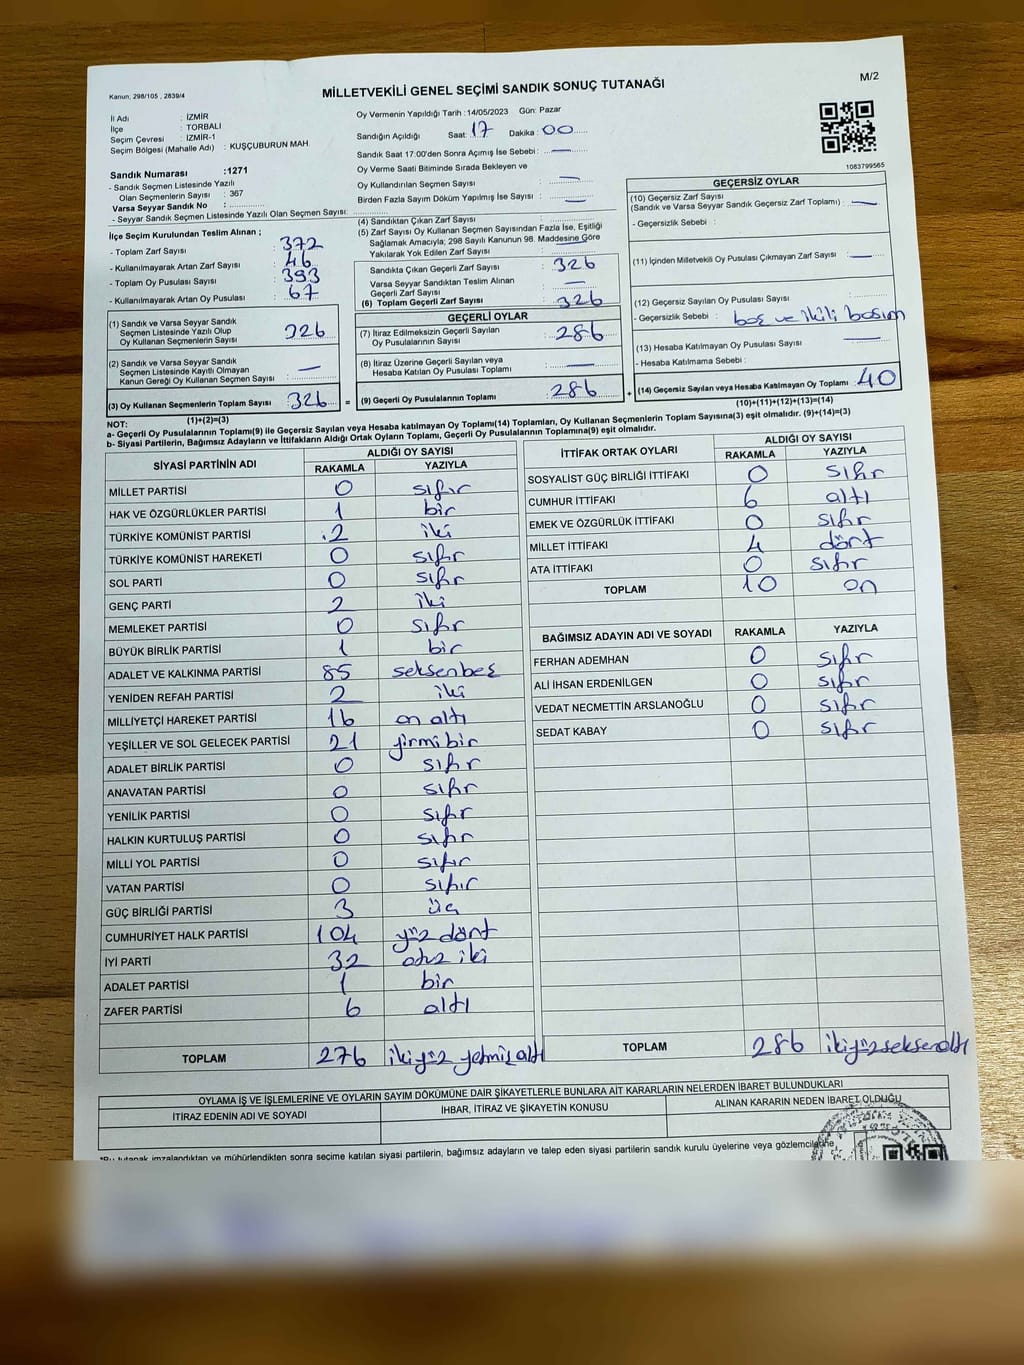 Kanun; 298/105 , 2839/4
MİLLETVEKİLİ GENEL SEÇİMİ SANDIK SONUÇ TUTANAĞI
M/2
İl Adı : İZMİR
İlçe : TORBALI
Seçim Çevresi : İZMİR-1
Seçim Bölgesi (Mahalle Adı) : KUŞÇUBURUN MAH.
Sandık Numarası :1271
- Sandık Seçmen Listesinde Yazılı
Olan Seçmenlerin Sayısı : 367
Varsa Seyyar Sandık No :
- Seyyar Sandık Seçmen Listesinde Yazılı Olan Seçmen Sayısı:
İlçe Seçim Kurulundan Teslim Alınan ;
- Toplam Zarf Sayısı : 372
- Kullanılmayarak Artan Zarf Sayısı : 46
- Toplam Oy Pusulası Sayısı : 393
- Kullanılmayarak Artan Oy Pusulası : 67
(1) Sandık ve Varsa Seyyar Sandık
Seçmen Listesinde Yazılı Olup
Oy Kullanan Seçmenlerin Sayısı : 326
(2) Sandık ve Varsa Seyyar Sandık
Seçmen Listesinde Kayıtlı Olmayan
Kanun Gereği Oy Kullanan Seçmen Sayısı : —
(3) Oy Kullanan Seçmenlerin Toplam Sayısı : 326 =
(1)+(2)=(3)
Oy Vermenin Yapıldığı Tarih :14/05/2023 Gün: Pazar
Sandığın Açıldığı Saat: 17 Dakika : 00
Sandık Saat 17:00'den Sonra Açımış İse Sebebi : —
Oy Verme Saati Bitiminde Sırada Bekleyen ve
Oy Kullandırılan Seçmen Sayısı : —
Birden Fazla Sayım Döküm Yapılmış İse Sayısı : —
(4) Sandıktan Çıkan Zarf Sayısı :
(5) Zarf Sayısı Oy Kullanan Seçmen Sayısından Fazla İse, Eşitliği
Sağlamak Amacıyla; 298 Sayılı Kanunun 98. Maddesine Göre
Yakılarak Yok Edilen Zarf Sayısı : —
Sandıkta Çıkan Geçerli Zarf Sayısı : 326
Varsa Seyyar Sandıktan Teslim Alınan
Geçerli Zarf Sayısı : —
(6) Toplam Geçerli Zarf Sayısı : 326
GEÇERLİ OYLAR
(7) İtiraz Edilmeksizin Geçerli Sayılan
Oy Pusulalarının Sayısı : 286
(8) İtiraz Üzerine Geçerli Sayılan veya
Hesaba Katılan Oy Pusulası Toplamı : —
(9) Geçerli Oy Pusulalarının Toplamı : 286 +
1083799565
GEÇERSİZ OYLAR
(10) Geçersiz Zarf Sayısı
(Sandık ve Varsa Seyyar Sandık Geçersiz Zarf Toplamı) : —
- Geçersizlik Sebebi :
(11) İçinden Milletvekili Oy Pusulası Çıkmayan Zarf Sayısı : —
(12) Geçersiz Sayılan Oy Pusulası Sayısı :
- Geçersizlik Sebebi : boş ve ikili basım
(13) Hesaba Katılmayan Oy Pusulası Sayısı : —
- Hesaba Katılmama Sebebi :
(14) Geçersiz Sayılan veya Hesaba Katılmayan Oy Toplamı : 40
(10)+(11)+(12)+(13)=(14)
NOT:
a- Geçerli Oy Pusulalarının Toplamı(9) ile Geçersiz Sayılan veya Hesaba katılmayan Oy Toplamı(14) Toplamları, Oy Kullanan Seçmenlerin Toplam Sayısına(3) eşit olmalıdır. (9)+(14)=(3)
b- Siyasi Partilerin, Bağımsız Adayların ve İttifakların Aldığı Ortak Oyların Toplamı, Geçerli Oy Pusulalarının Toplamına(9) eşit olmalıdır.
SİYASİ PARTİNİN ADI ALDIĞI OY SAYISI
RAKAMLA YAZIYLA
MİLLET PARTİSİ 0 sıfır
HAK VE ÖZGÜRLÜKLER PARTİSİ 1 bir
TÜRKİYE KOMÜNİST PARTİSİ 2 iki
TÜRKİYE KOMÜNİST HAREKETİ 0 sıfır
SOL PARTİ 0 sıfır
GENÇ PARTİ 2 iki
MEMLEKET PARTİSİ 0 sıfır
BÜYÜK BİRLİK PARTİSİ 1 bir
ADALET VE KALKINMA PARTİSİ 85 seksenbeş
YENİDEN REFAH PARTİSİ 2 iki
MİLLİYETÇİ HAREKET PARTİSİ 16 on altı
YEŞİLLER VE SOL GELECEK PARTİSİ 21 yirmi bir
ADALET BİRLİK PARTİSİ 0 sıfır
ANAVATAN PARTİSİ 0 sıfır
YENİLİK PARTİSİ 0 sıfır
HALKIN KURTULUŞ PARTİSİ 0 sıfır
MİLLİ YOL PARTİSİ 0 sıfır
VATAN PARTİSİ 0 sıfır
GÜÇ BİRLİĞİ PARTİSİ 3 üç
CUMHURİYET HALK PARTİSİ 104 yüz dört
İYİ PARTİ 32 otuz iki
ADALET PARTİSİ 1 bir
ZAFER PARTİSİ 6 altı
TOPLAM 276 ikiyüz yetmiş altı
İTTİFAK ORTAK OYLARI ALDIĞI OY SAYISI
RAKAMLA YAZIYLA
SOSYALİST GÜÇ BİRLİĞİ İTTİFAKI 0 sıfır
CUMHUR İTTİFAKI 6 altı
EMEK VE ÖZGÜRLÜK İTTİFAKI 0 sıfır
MİLLET İTTİFAKI 4 dört
ATA İTTİFAKI 0 sıfır
TOPLAM 10 on
BAĞIMSIZ ADAYIN ADI VE SOYADI RAKAMLA YAZIYLA
FERHAN ADEMHAN 0 sıfır
ALİ İHSAN ERDENİLGEN 0 sıfır
VEDAT NECMETTİN ARSLANOĞLU 0 sıfır
SEDAT KABAY 0 sıfır
TOPLAM 286 ikiyüzseksenaltı
OYLAMA İŞ VE İŞLEMLERİNE VE OYLARIN SAYIM DÖKÜMÜNE DAİR ŞİKAYETLERLE BUNLARA AİT KARARLARIN NELERDEN İBARET BULUNDUKLARI
İTİRAZ EDENİN ADI VE SOYADI İHBAR, İTİRAZ VE ŞİKAYETİN KONUSU ALINAN KARARIN NEDEN İBARET OLDUĞU
*Bu tutanak imzalandıktan ve mühürlendikten sonra seçime katılan siyasi partilerin, bağımsız adayların ve talep eden siyasi partilerin sandık kurulu üyelerine veya gözlemcilerine